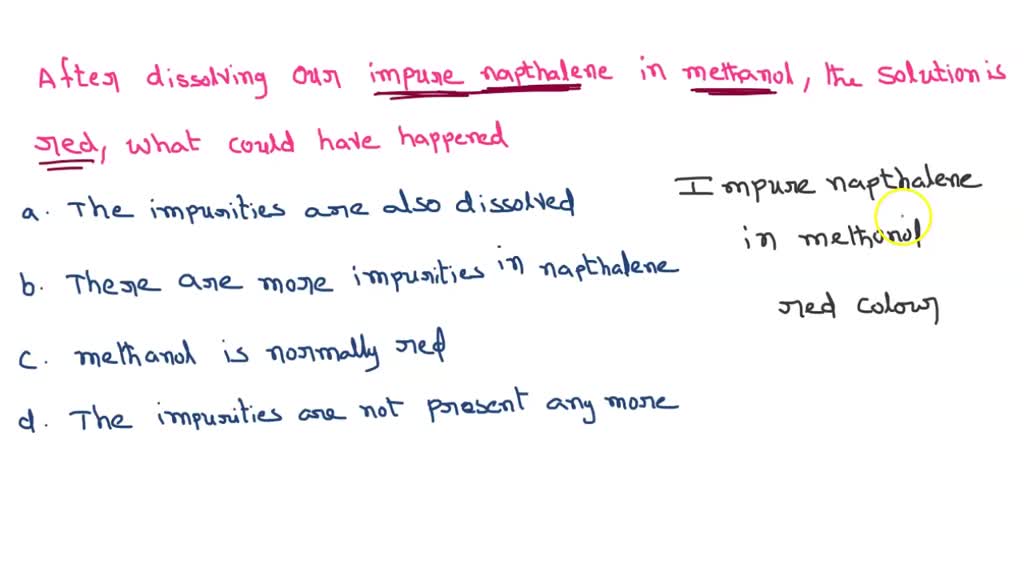 After dissolving our impure napthalene in methanol, the solution is
red, what could have happened
a. The impurities are also dissolved
b. There are more impurities in napthalene
c. methanol is normally red
d. The impurities are not present any more
Impure napthalene
in methanol
red colour